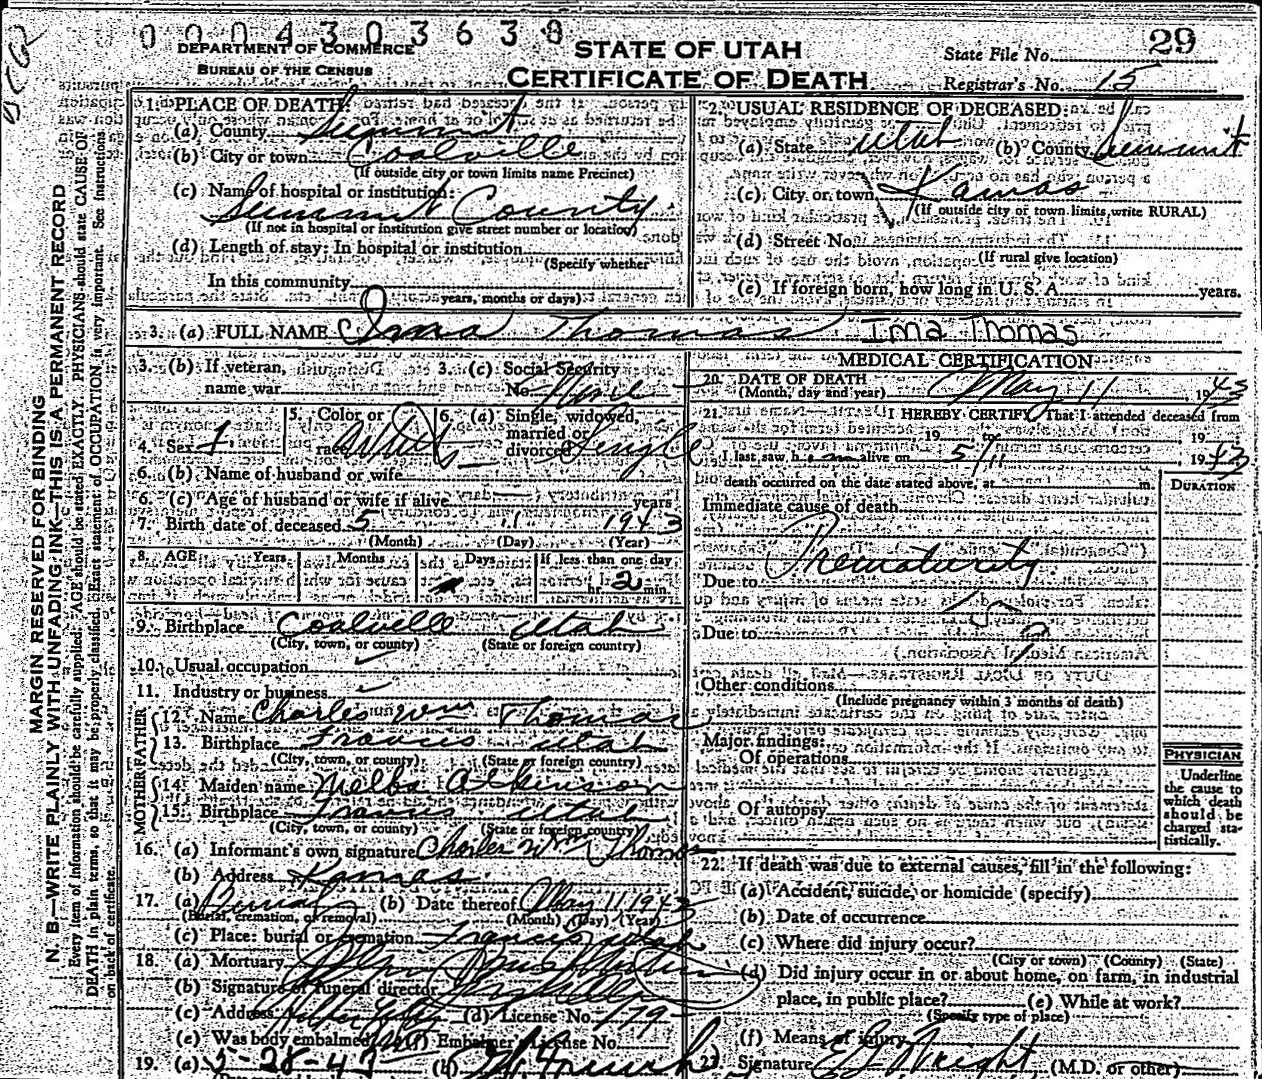 0004303638
DEPARTMENT OF COMMERCE
BUREAU OF THE CENSUS
STATE OF UTAH
CERTIFICATE OF DEATH
State File No. 29
Registrar's No. 15
MARGIN RESERVED FOR BINDING
N. B.—WRITE PLAINLY WITH UNFADING INK—THIS IS A PERMANENT RECORD
Every item of information should be carefully supplied. AGE should be stated EXACTLY. PHYSICIANS should state CAUSE OF
DEATH in plain terms, so that it may be properly classified. Exact statement of OCCUPATION is very important. See instructions
on back of certificate.
1. PLACE OF DEATH:
(a) County Summit
(b) City or town Coalville
(If outside city or town limits name Precinct)
(c) Name of hospital or institution:
Summit County
(If not in hospital or institution give street number or location)
(d) Length of stay: In hospital or institution
(Specify whether
In this community
years, months or days)
USUAL RESIDENCE OF DECEASED:
(a) State Utah (b) County Summit
(c) City or town Kamas
(If outside city or town limits, write RURAL)
(d) Street No.
(If rural give location)
(e) If foreign born, how long in U. S. A. years.
3. (a) FULL NAME Ima Thomas Ima Thomas
3. (b) If veteran, name war
3. (c) Social Security No. None
4. Sex f
5. Color or race White
6. (a) Single, widowed, married or divorced Single
6. (b) Name of husband or wife
6. (c) Age of husband or wife if alive years
7. Birth date of deceased 5 11 1943
(Month) (Day) (Year)
8. AGE Years Months Days If less than one day
hr. 2 min.
9. Birthplace Coalville Utah
(City, town, or county) (State or foreign country)
10. Usual occupation
11. Industry or business
FATHER
12. Name Charles Wm Thomas
13. Birthplace Francis Utah
(City, town, or county) (State or foreign country)
MOTHER
14. Maiden name Melba Atkinson
15. Birthplace Francis Utah
(City, town, or county) (State or foreign country)
16. (a) Informant's own signature Charles Wm Thomas
(b) Address Kamas
17. (a) Burial (b) Date thereof May 11 1943
(Burial, cremation, or removal) (Month) (Day) (Year)
(c) Place: burial or cremation Francis Utah
18. (a) Mortuary
(b) Signature of funeral director
(c) Address (d) License No. 179
(e) Was body embalmed Embalmer's License No.
19. (a) 5-28-43 (b)
MEDICAL CERTIFICATION
20. DATE OF DEATH
(Month, day and year) May 11, 1943
21. I HEREBY CERTIFY That I attended deceased from
19 to 19
I last saw h em alive on 5/11, 1943
death occurred on the date stated above, at m.
DURATION
Immediate cause of death
Prematurity
Due to
Due to
Other conditions
(Include pregnancy within 3 months of death)
Major findings:
Of operations
Of autopsy
PHYSICIAN
Underline
the cause to
which death
should be
charged sta-
tistically.
22. If death was due to external causes, fill in the following:
(a) Accident, suicide, or homicide (specify)
(b) Date of occurrence
(c) Where did injury occur?
(City or town) (County) (State)
(d) Did injury occur in or about home, on farm, in industrial
place, in public place? (e) While at work?
(Specify type of place)
(f) Means of injury
23. Signature Wright (M.D. or other)